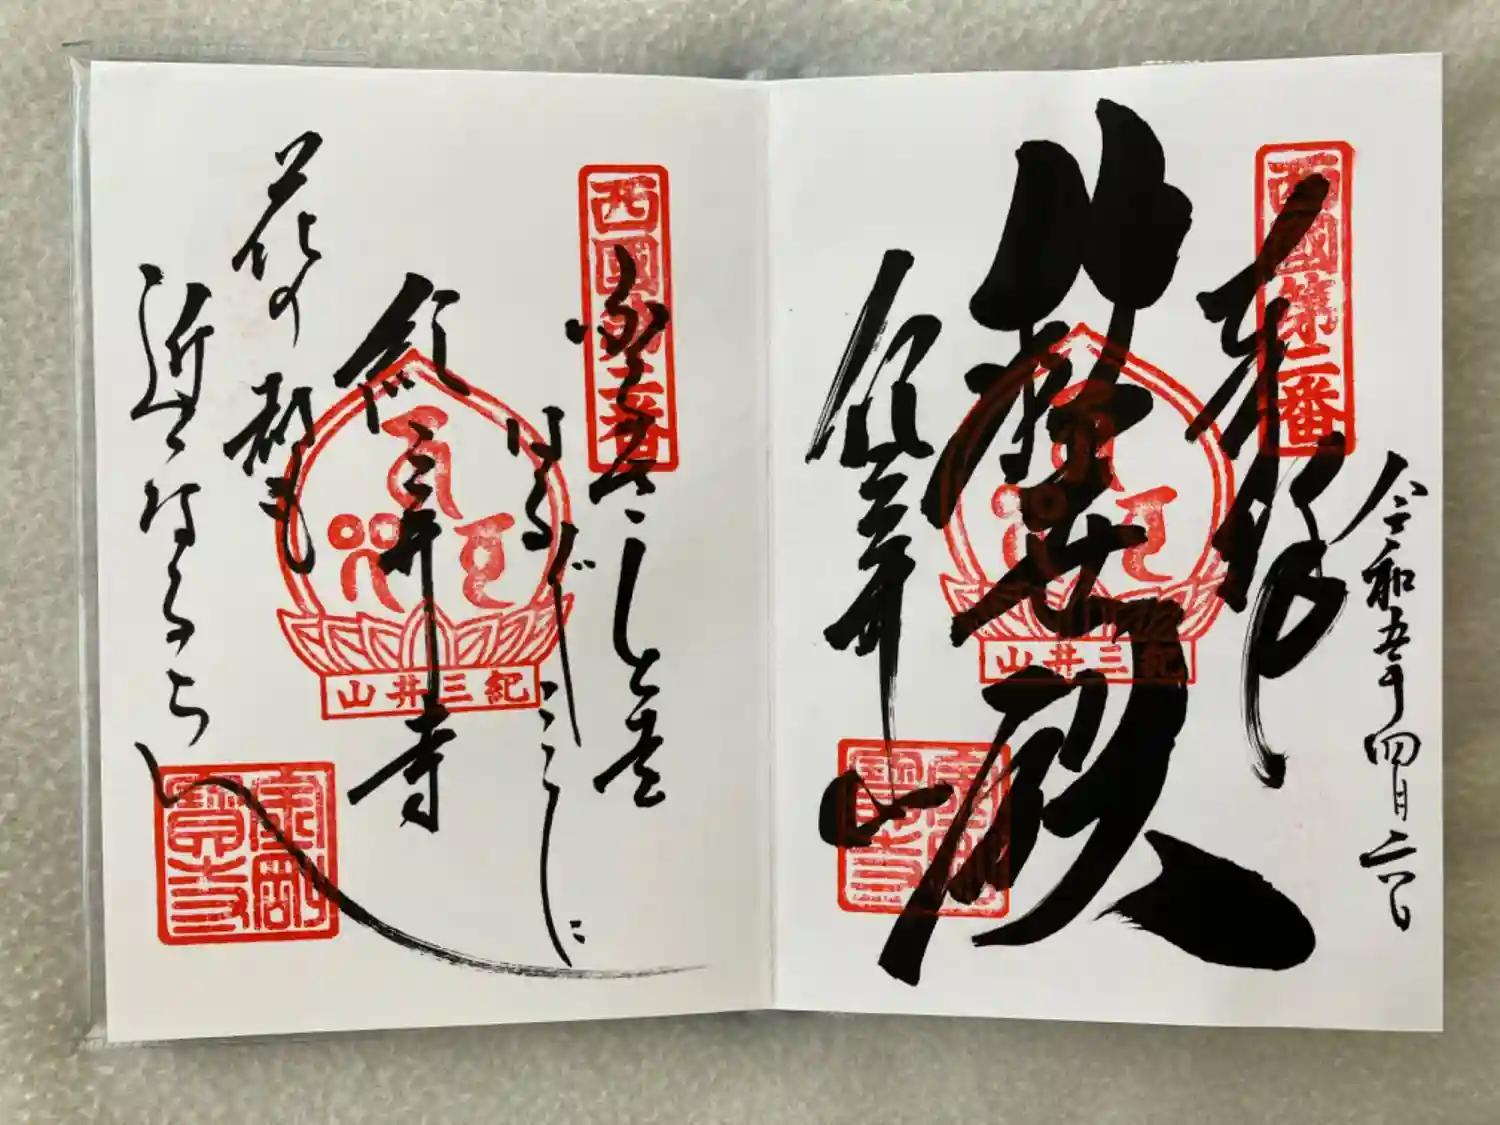 西國第二番
奉拝
令和五年四月
救世殿
紀三井山
紀三井山
金剛寶寺
西國第二番
ふるさとを
はるばるここに
紀三井寺
花の都も
近くなるらん
紀三井山
金剛寶寺